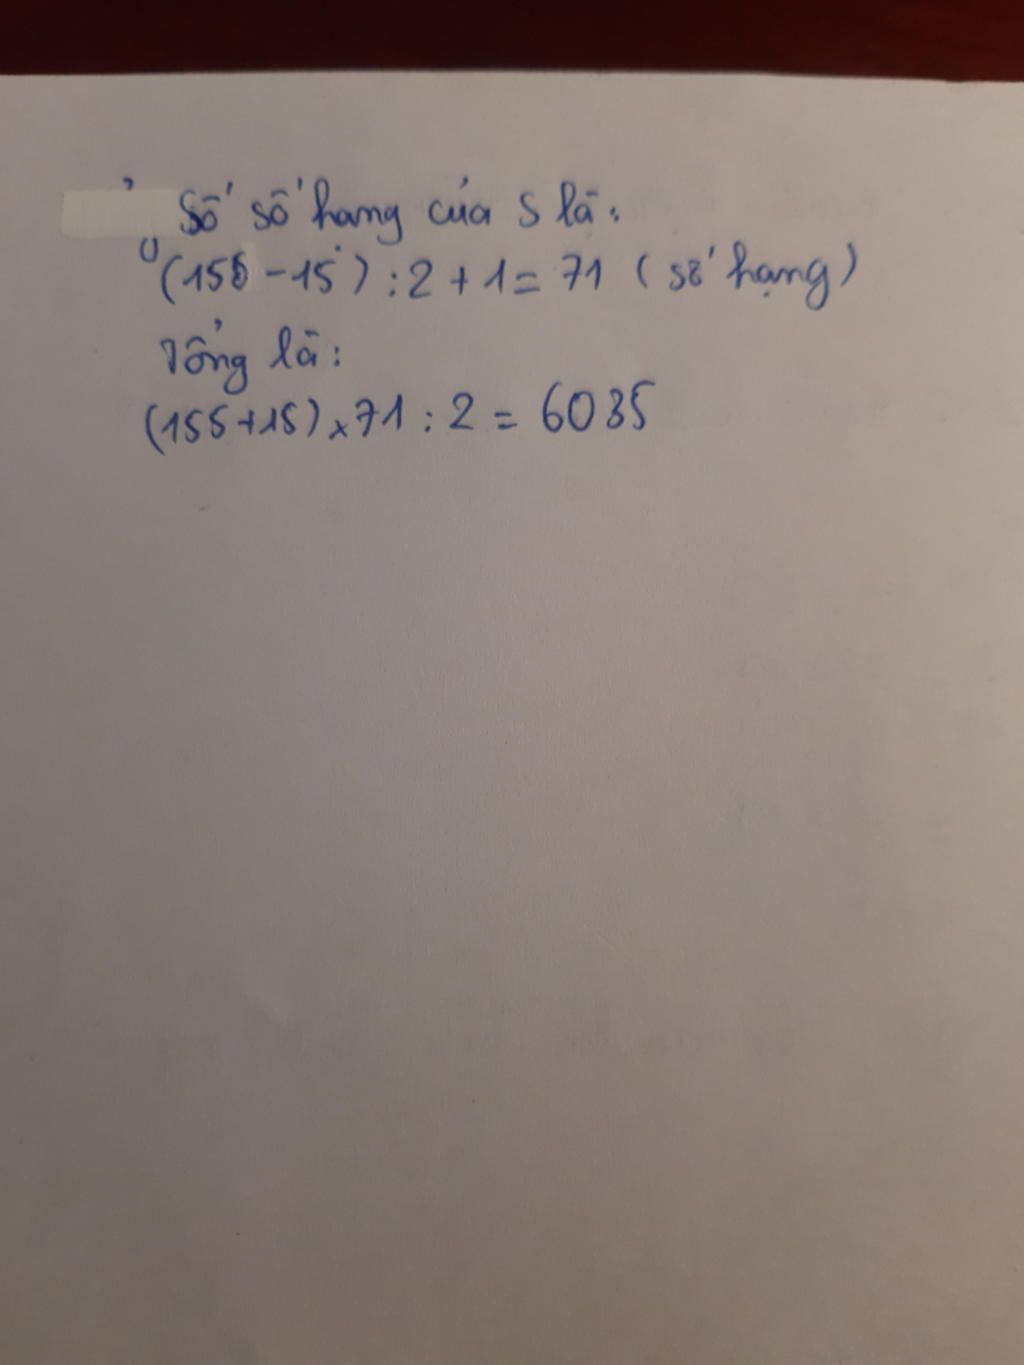 Số số hang của S là:
(155 - 15) : 2 + 1 = 71 (số hạng)
Tổng là:
(155 + 15) x 71 : 2 = 6035